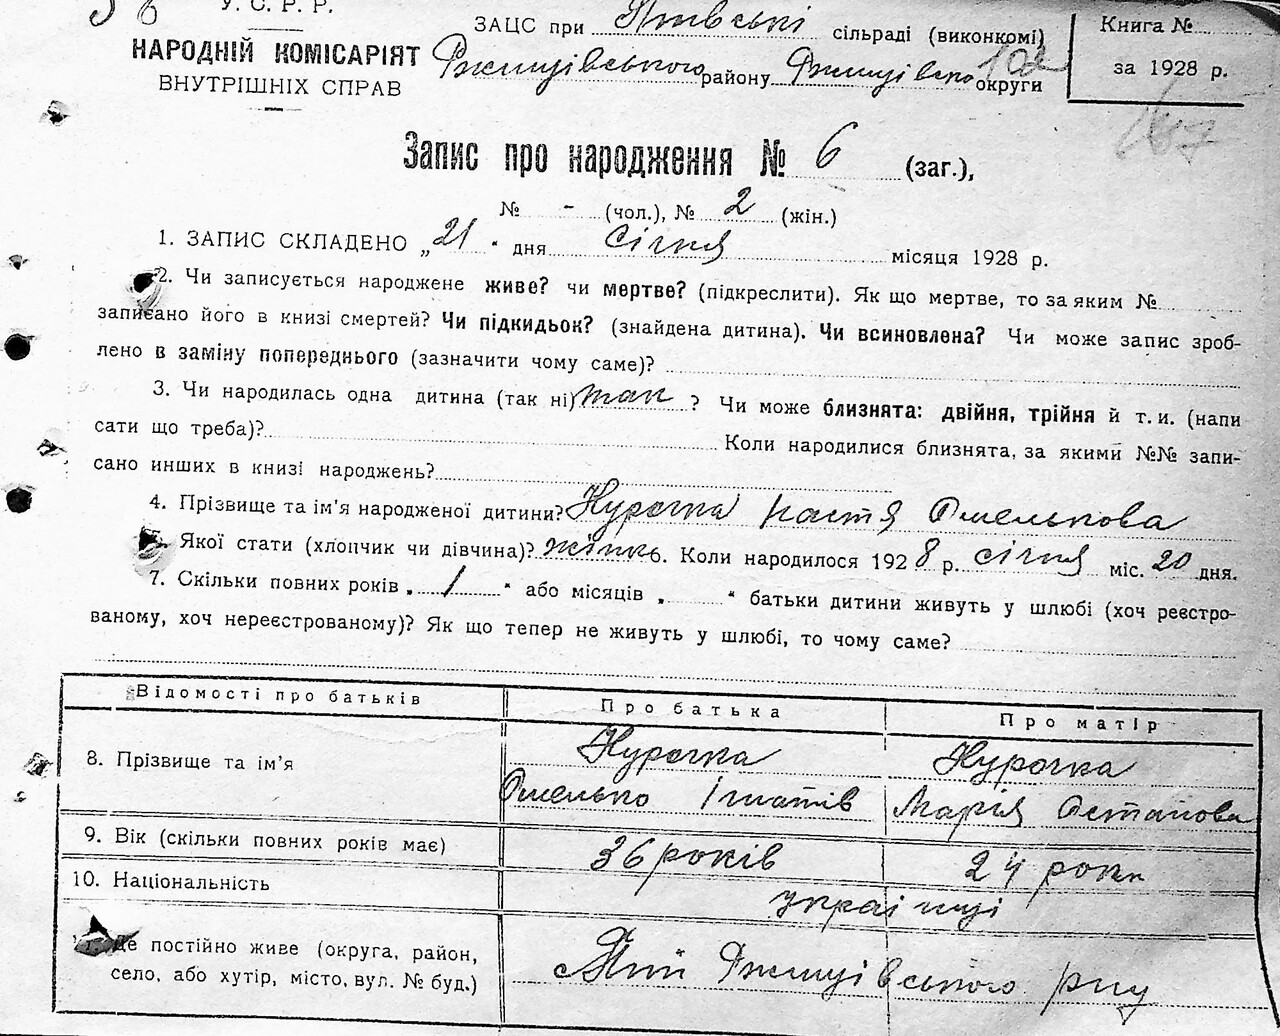 У. С. Р. Р.
НАРОДНІЙ КОМІСАРІЯТ
ВНУТРІШНІХ СПРАВ
ЗАЦС при сільраді (виконкомі)
Ржищівського району Ржищівсько округи
Книга №
за 1928 р.
Запис про народження № 6 (заг.),
№ - (чол.), № 2 (жін.)
1. ЗАПИС СКЛАДЕНО „21“ дня січня місяця 1928 р.
2. Чи записується народжене живе? чи мертве? (підкреслити). Як що мертве, то за яким №
записано його в книзі смертей? Чи підкидьок? (знайдена дитина). Чи всиновлена? Чи може запис зроб-
лено в заміну попереднього (зазначити чому саме)?
3. Чи народилась одна дитина (так ні) так ? Чи може близнята: двійня, трійня й т. и. (напи
сати що треба)? Коли народилися близнята, за якими №№ запи-
сано инших в книзі народжень?
4. Прізвище та ім'я народженої дитини? Курочка Настя Омелькова
Якої стати (хлопчик чи дівчина)? жіно 6. Коли народилося 1928 р. січня міс. 20 дня.
7. Скільки повних років „1“ або місяців „ “ батьки дитини живуть у шлюбі (хоч реєстро-
ваному, хоч нереєстрованому)? Як що тепер не живуть у шлюбі, то чому саме?
Відомості про батьків Про батька Про матір
8. Прізвище та ім'я Курочка Курочка
Омелько Ігнатів Марія Остапова
9. Вік (скільки повних років має) 36 років 24 роки
10. Національність українці
11. Де постійно живе (округа, район,
село, або хутір, місто, вул. № буд.) Ржищівського р-ну